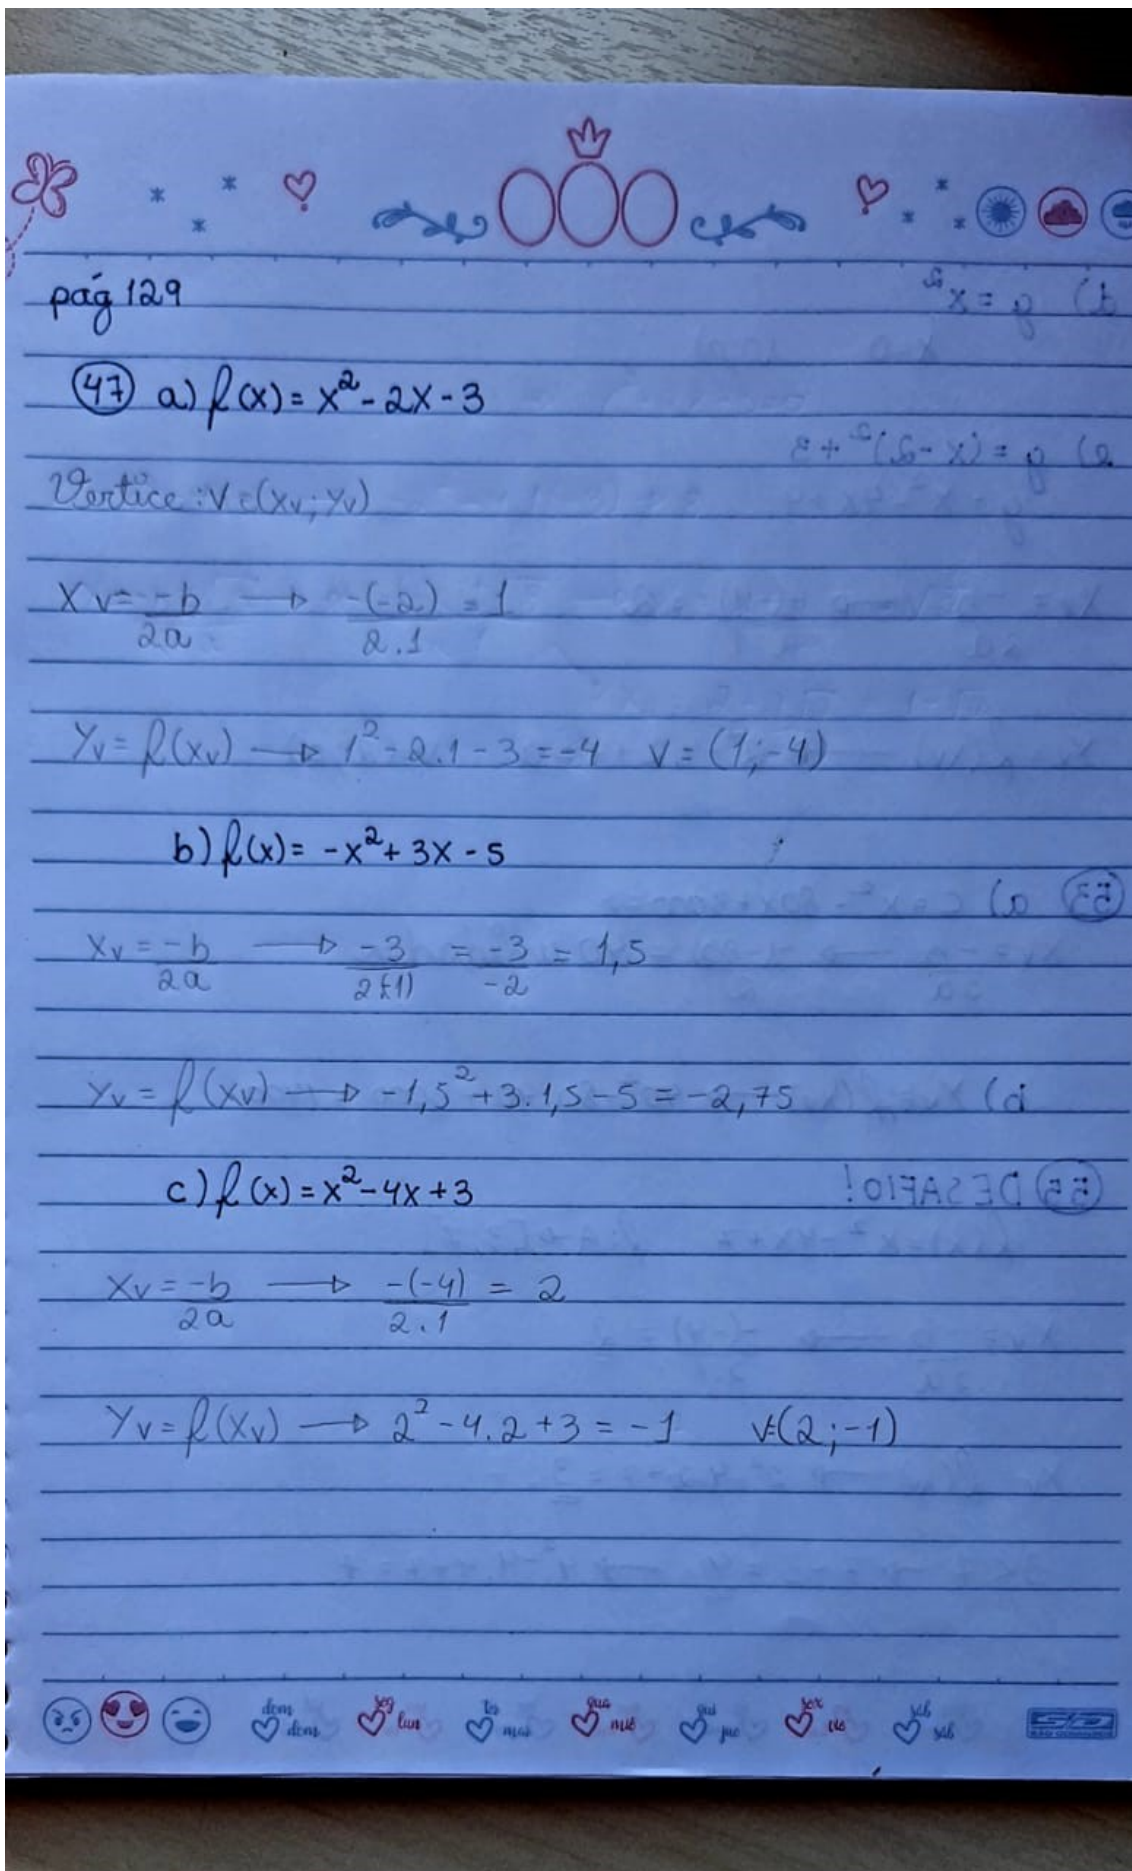 pág 129
47 a) f(x) = x² - 2x - 3
Vertice : V = (Xv; Yv)
Xv = -b/2a → -(-2)/2.1 = 1
Yv = f(xv) → 1² - 2.1 - 3 = -4 V = (1; -4)
b) f(x) = -x² + 3x - 5
Xv = -b/2a → -3/2(-1) = -3/-2 = 1,5
Yv = f(xv) → -1,5² + 3.1,5 - 5 = -2,75
c) f(x) = x² - 4x + 3
Xv = -b/2a → -(-4)/2.1 = 2
Yv = f(xv) → 2² - 4.2 + 3 = -1 V=(2; -1)
dom dom seg lun ter mar qua mié qui jue sex vie sáb sáb